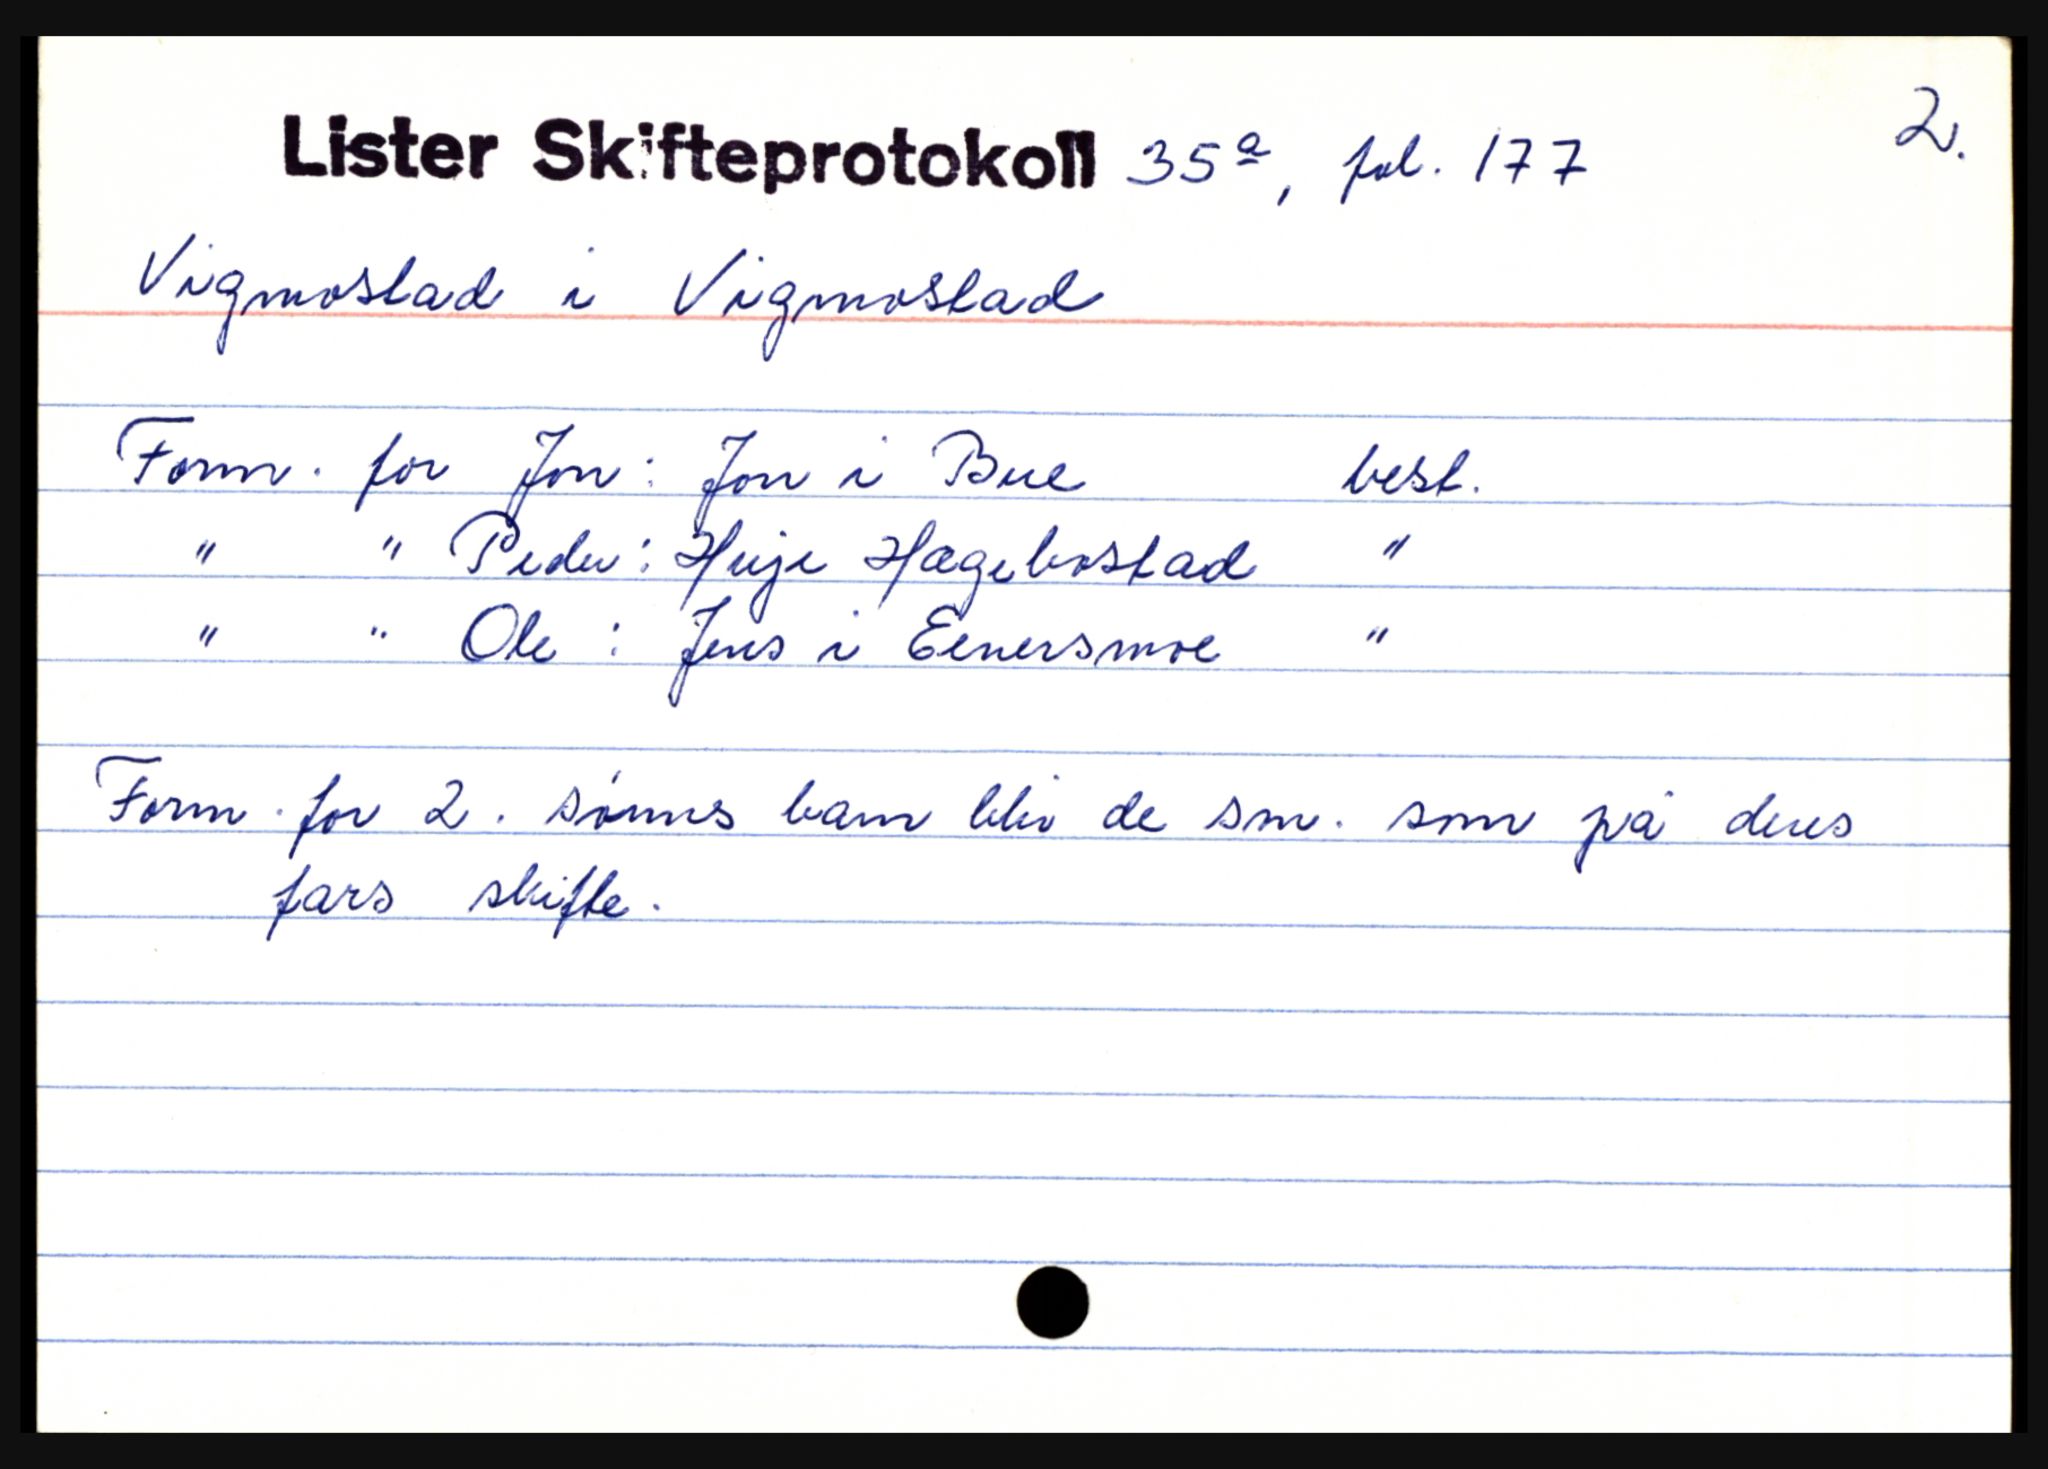 Lister Skifteprotokoll 35ª, fol. 177 2.
Vigmostad i Vigmostad
Form. for Jon: Jon i Bue best.
" " Peder: Huje Hægebostad "
" " Ole: Jens i Eenersmoe "
Form. for 2. sønns barn blir de sm. som på deres
fars skifte.